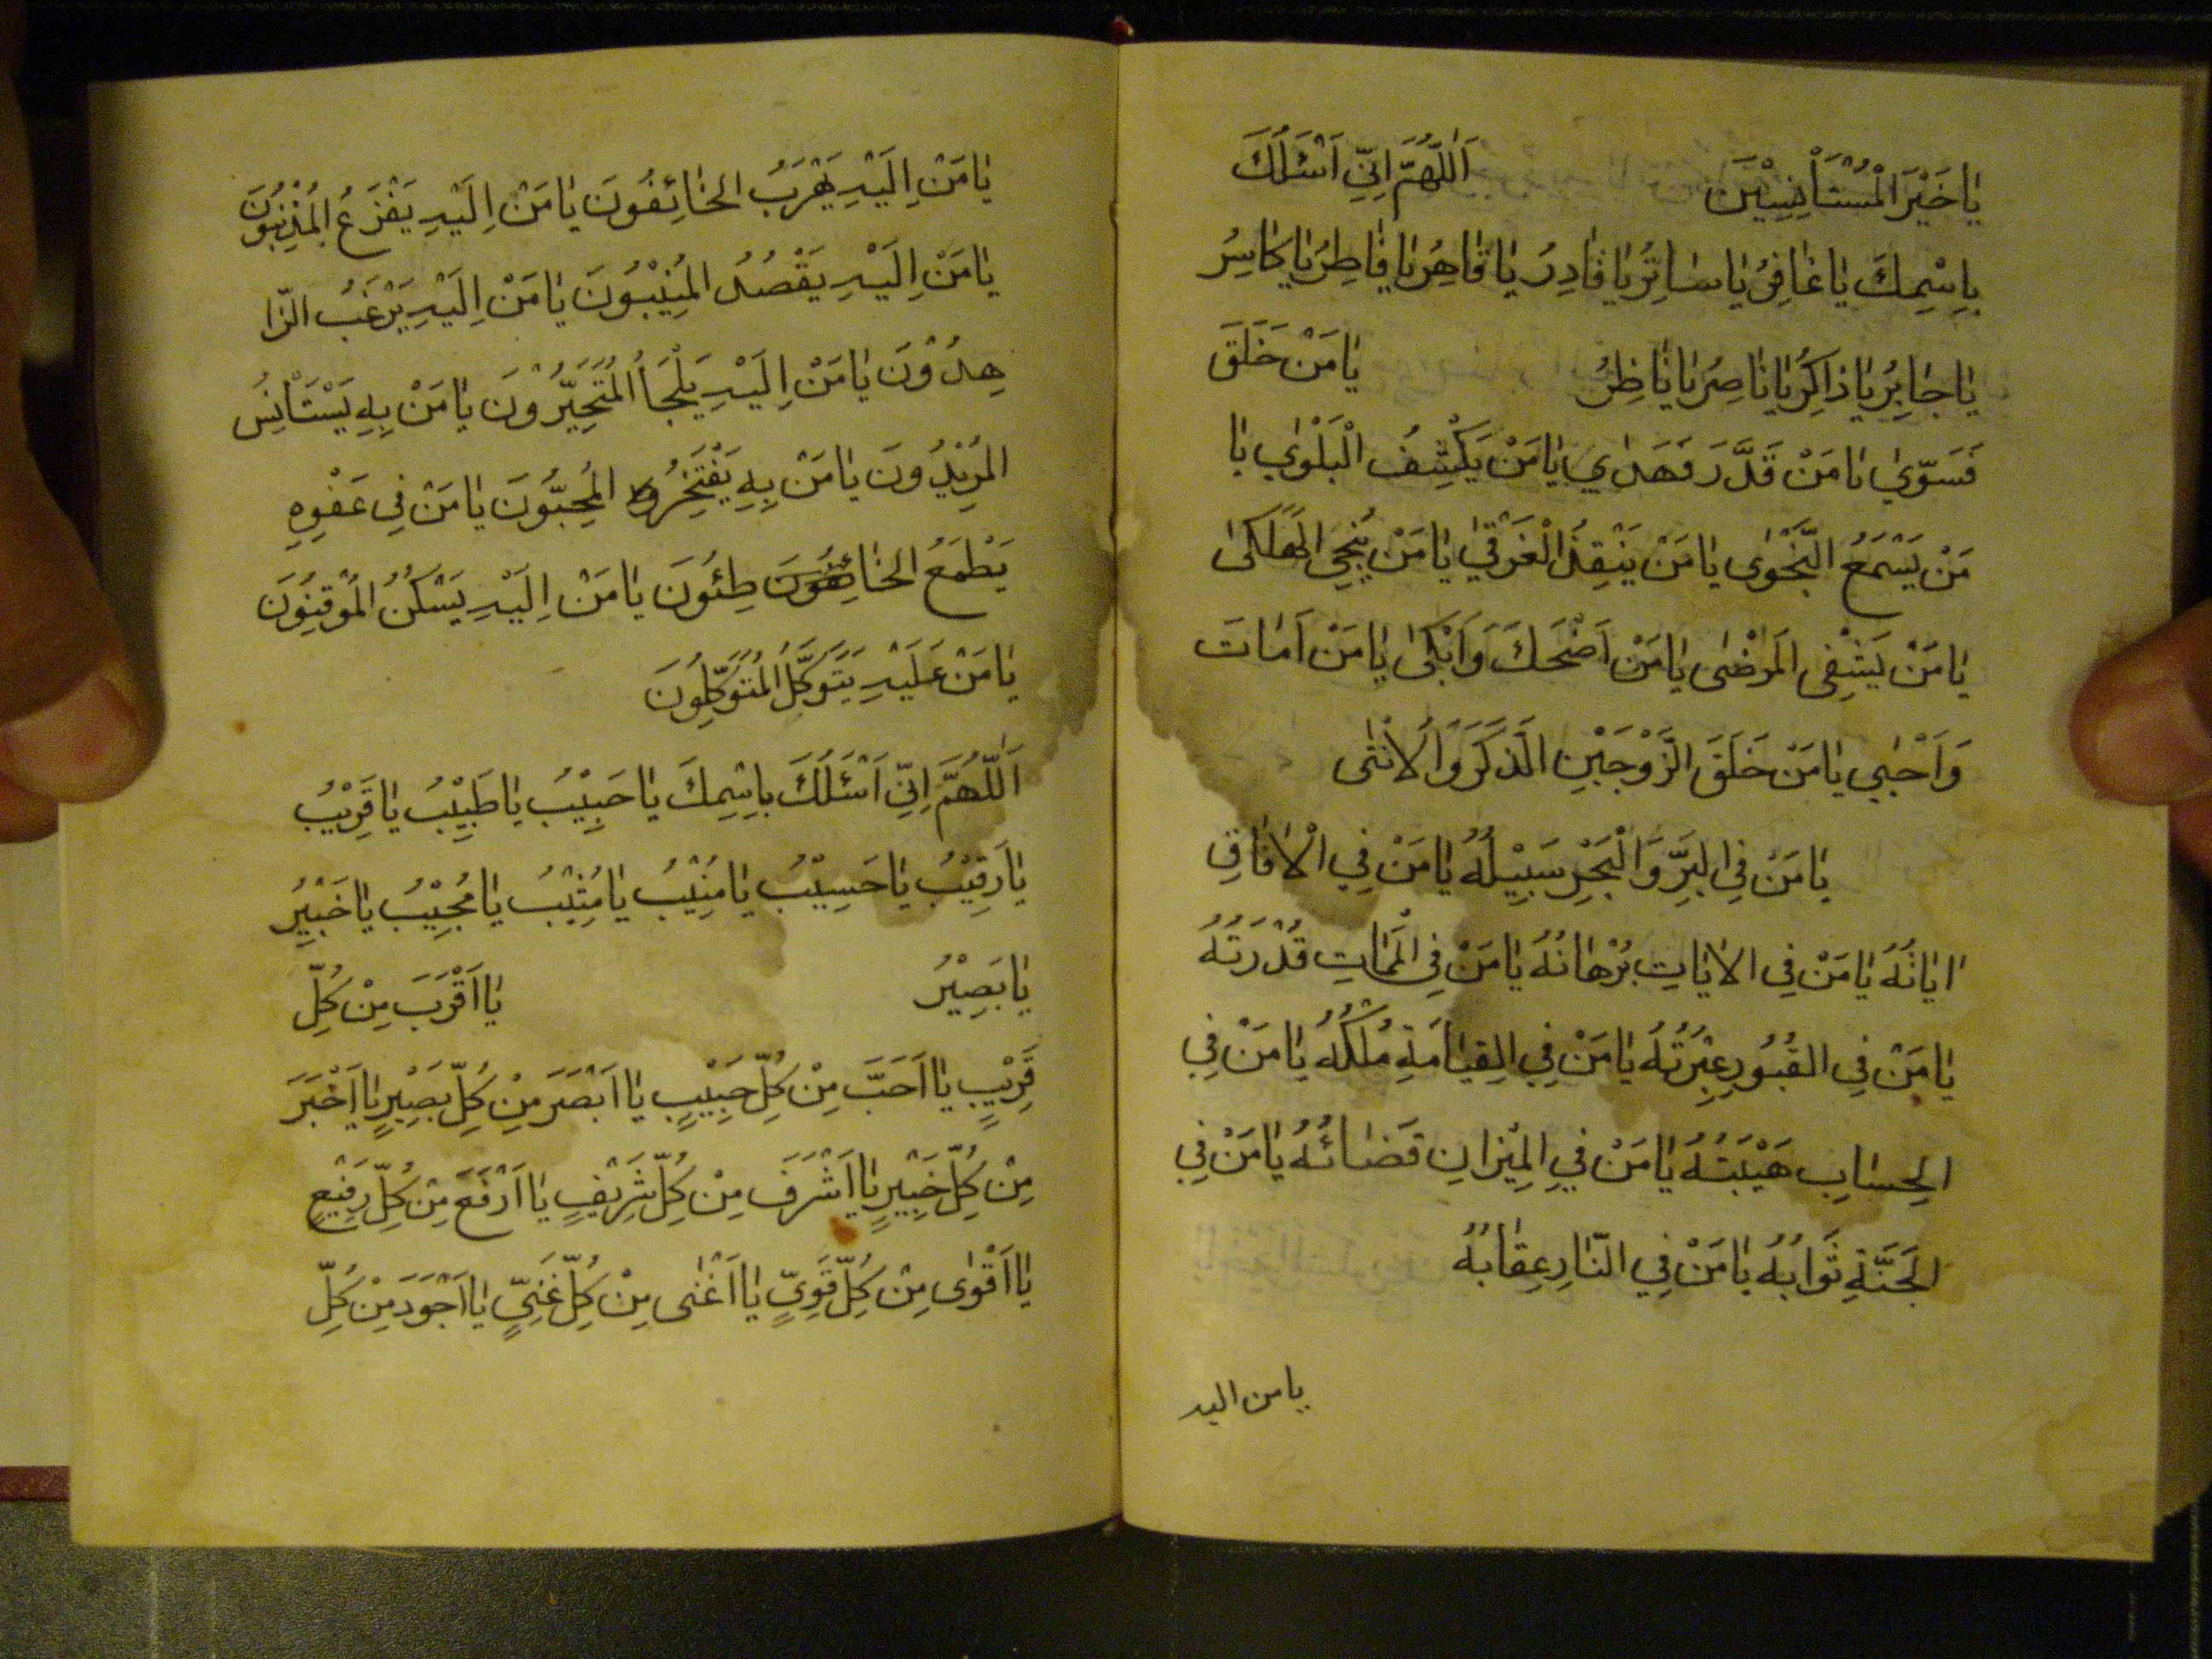 يٰا خَيْرَ الْمُسْتَأْنِسِيْنَ اَللّٰهُمَّ اِنِّي اَسْئَلُكَ
بِاسْمِكَ يٰا غٰافِرُ يٰا سٰاتِرُ يٰا قٰادِرُ يٰا قٰاهِرُ يٰا فٰاطِرُ يٰا كٰاسِرُ
يٰا جٰابِرُ يٰا ذٰاكِرُ يٰا نٰاصِرُ يٰا نٰاظِرُ يٰا مَنْ خَلَقَ
فَسَوّٰي يٰا مَنْ قَدَّرَ فَهَدٰي يٰا مَنْ يَكْشِفُ الْبَلْوٰي يٰا
مَنْ يَسْمَعُ النَّجْوٰى يٰا مَنْ يَنْقِذُ الْغَرْقٰي يٰا مَنْ يُنْجِي الهَلَكىٰ
يٰا مَنْ يَشْفِى المَرْضٰى يٰا مَنْ اَضْحَكَ وَاَبْكىٰ يٰا مَنْ اَمٰاتَ
وَاَحْيٰي يٰا مَنْ خَلَقَ الزَّوْجَيْنِ الَّذكَرَ وَالاُنْثٰى
يٰا مَنْ فِي البَرِّ وَالْبَحْرِ سَبِيْلُهُ يٰا مَنْ فِي الْاٰفٰاقِ
اٰيٰاتُهُ يٰا مَنْ فِي الاٰيٰاتِ بُرْهٰانُهُ يٰا مَنْ فِي المَمٰاتِ قُدْرَتُهُ
يٰا مَنْ فِي القُبُورِ عِبْرَتُهُ يٰا مَنْ فِي القِيٰامَةِ مُلْكُهُ يٰا مَنْ فِي
الحِسٰابِ هَيْبَتُهُ يٰا مَنْ فِي المِيْزٰانِ قَضٰائُهُ يٰا مَنْ فِي
الجَنَّةِ ثَوٰابُهُ يٰا مَنْ فِي النّٰارِ عِقٰابُهُ
يا من اليه
يٰا مَنْ اِلَيْهِ يَهْرَبُ الخٰائِفُونَ يٰا مَنْ اِلَيْهِ يَفْزَعُ المُذْنِبُونَ
يٰا مَنْ اِلَيْهِ يَقْصُدُ المُنِيْبُونَ يٰا مَنْ اِلَيْهِ يَرْغَبُ الزّٰا
هِدُوْنَ يٰا مَنْ اِلَيْهِ يَلْجَأُ المُتَحَيِّرُوْنَ يٰا مَنْ بِهِ يَسْتَأْنِسُ
المُرِيْدُونَ يٰا مَنْ بِهِ يَفْتَخِرُ المُحِبُّونَ يٰا مَنْ فِي عَفْوِهِ
يَطْمَعُ الخٰاطِئُونَ يٰا مَنْ اِلَيْهِ يَسْكُنُ المُوْقِنُونَ
يٰا مَنْ عَلَيْهِ يَتَوَكَّلُ المُتَوَكِّلُونَ
اَللّٰهُمَّ اِنِّي اَسْئَلُكَ بِاسْمِكَ يٰا حَبِيْبُ يٰا طَبِيْبُ يٰا قَرِيْبُ
يٰا رَقِيْبُ يٰا حَسِيْبُ يٰا مُنِيْبُ يٰا مُثِيْبُ يٰا مُجِيْبُ يٰا خَبِيْرُ
يٰا بَصِيْرُ يٰا اَقْرَبَ مِنْ كُلِّ
قَرِيْبٍ يٰا اَحَبَّ مِنْ كُلِّ حَبِيْبٍ يٰا اَبْصَرَ مِنْ كُلِّ بَصِيْرٍ يٰا اَخْبَرَ
مِنْ كُلِّ خَبِيْرٍ يٰا اَشْرَفَ مِنْ كُلِّ شَرِيْفٍ يٰا اَرْفَعَ مِنْ كُلِّ رَفِيْعٍ
يٰا اَقْوٰى مِنْ كُلِّ قَوِيٍّ يٰا اَغْنٰى مِنْ كُلِّ غَنِيٍّ يٰا اَجْوَدَ مِنْ كُلِّ